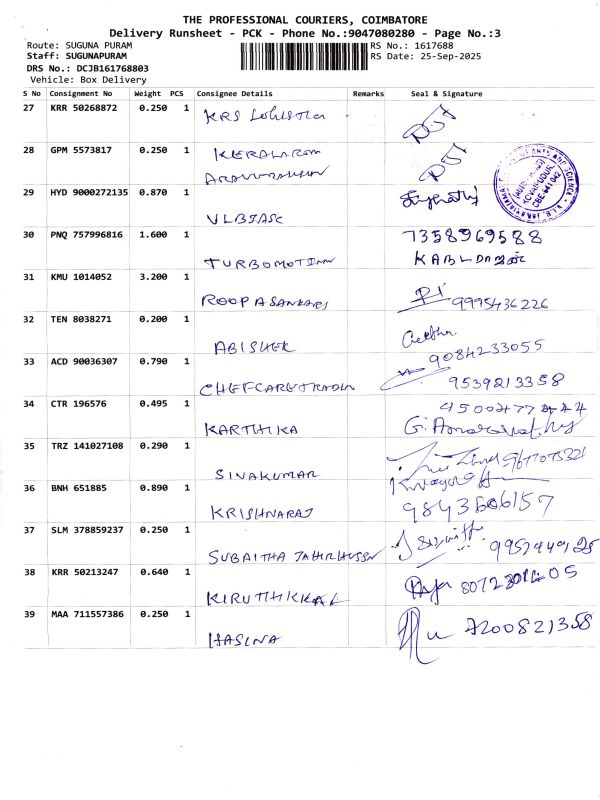 THE PROFESSIONAL COURIERS, COIMBATORE
Delivery Runsheet - PCK - Phone No.:9047080280 - Page No.:3
Route: SUGUNA PURAM
RS No.: 1617688
Staff: SUGUNAPURAM
RS Date: 25-Sep-2025
DRS No.: DCJB161768803
Vehicle: Box Delivery
S No Consignment No Weight PCS Consignee Details Remarks Seal & Signature
27 KRR 50268872 0.250 1
KRS
28 GPM 5573817 0.250 1
KERALA
29 HYD 9000272135 0.870 1
VLBJASC
30 PNQ 757996816 1.600 1 7358969588
TURBOMOTION
31 KMU 1014052 3.200 1
ROOPASANKARI 9995436226
32 TEN 8038271 0.200 1
ABISHEK 9084233055
33 ACD 90036307 0.790 1
CHEFCARETRADIN 9539213358
34 CTR 196576 0.495 1
KARTHIKA
35 TRZ 141027108 0.290 1
SIVAKUMAR
36 BNH 651885 0.890 1
KRISHNARAJ 9843606157
37 SLM 378859237 0.250 1
SUBAITHA JAHIRHUSSN
38 KRR 50213247 0.640 1
KIRUTHIKKAA
39 MAA 711557386 0.250 1
HASINA 7200821358